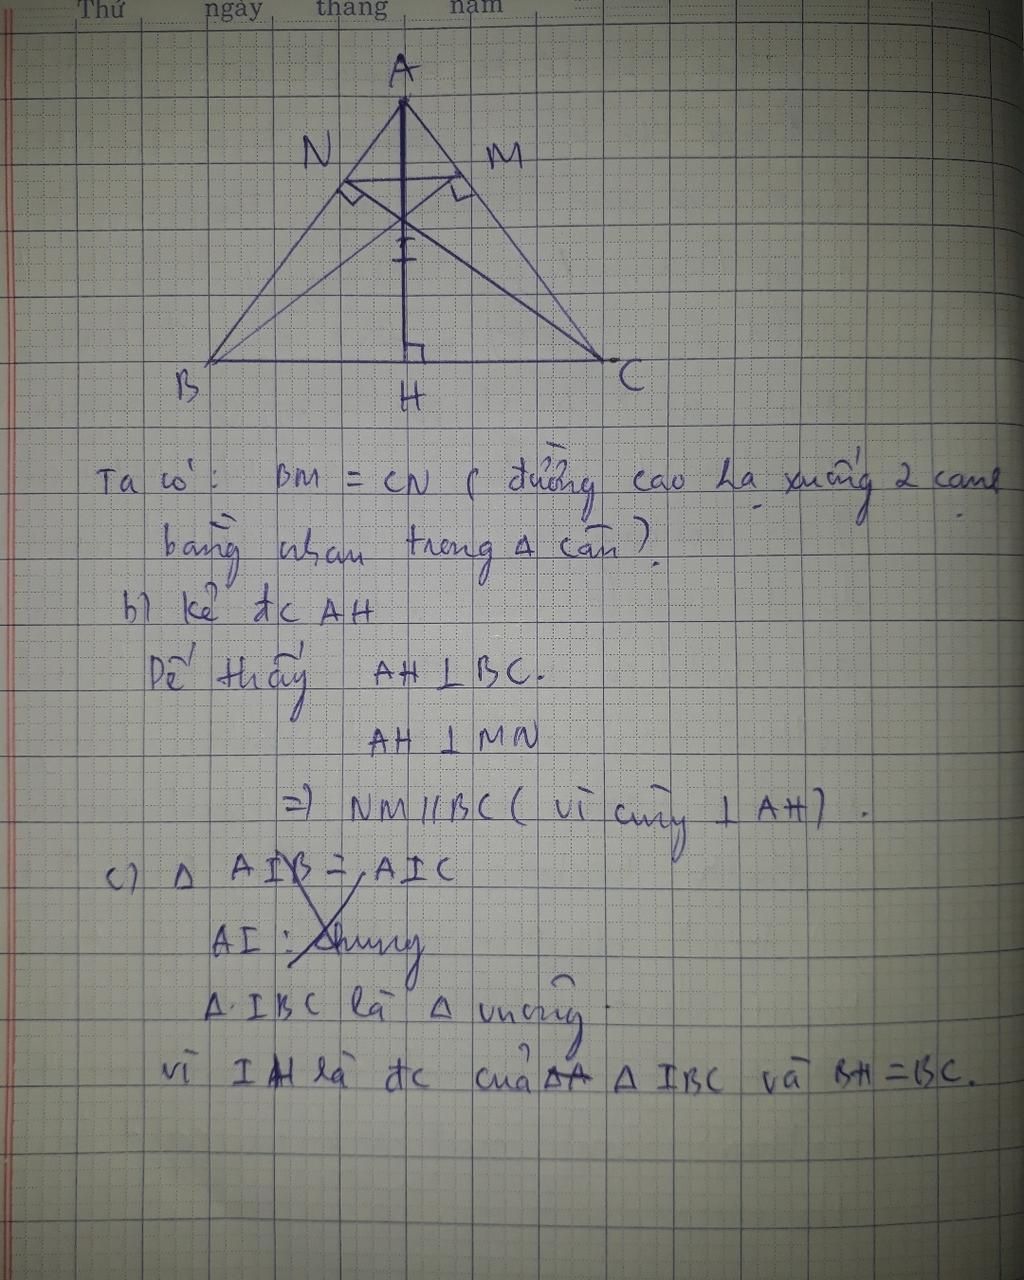 Thứ ngày tháng năm
A
N M
I
B H C
Ta có: BM = CN ( đường cao hạ xuống 2 cạnh
bằng nhau trong Δ cân).
b) Kẻ đc AH
Dễ thấy AH ⊥ BC.
AH ⊥ MN
=) NM // BC ( vì cùng ⊥ AH) .
c) Δ AIB = AIC
AI : chung
Δ IBC là Δ vuông
vì IH là đc của Δ IBC và BH = BC.